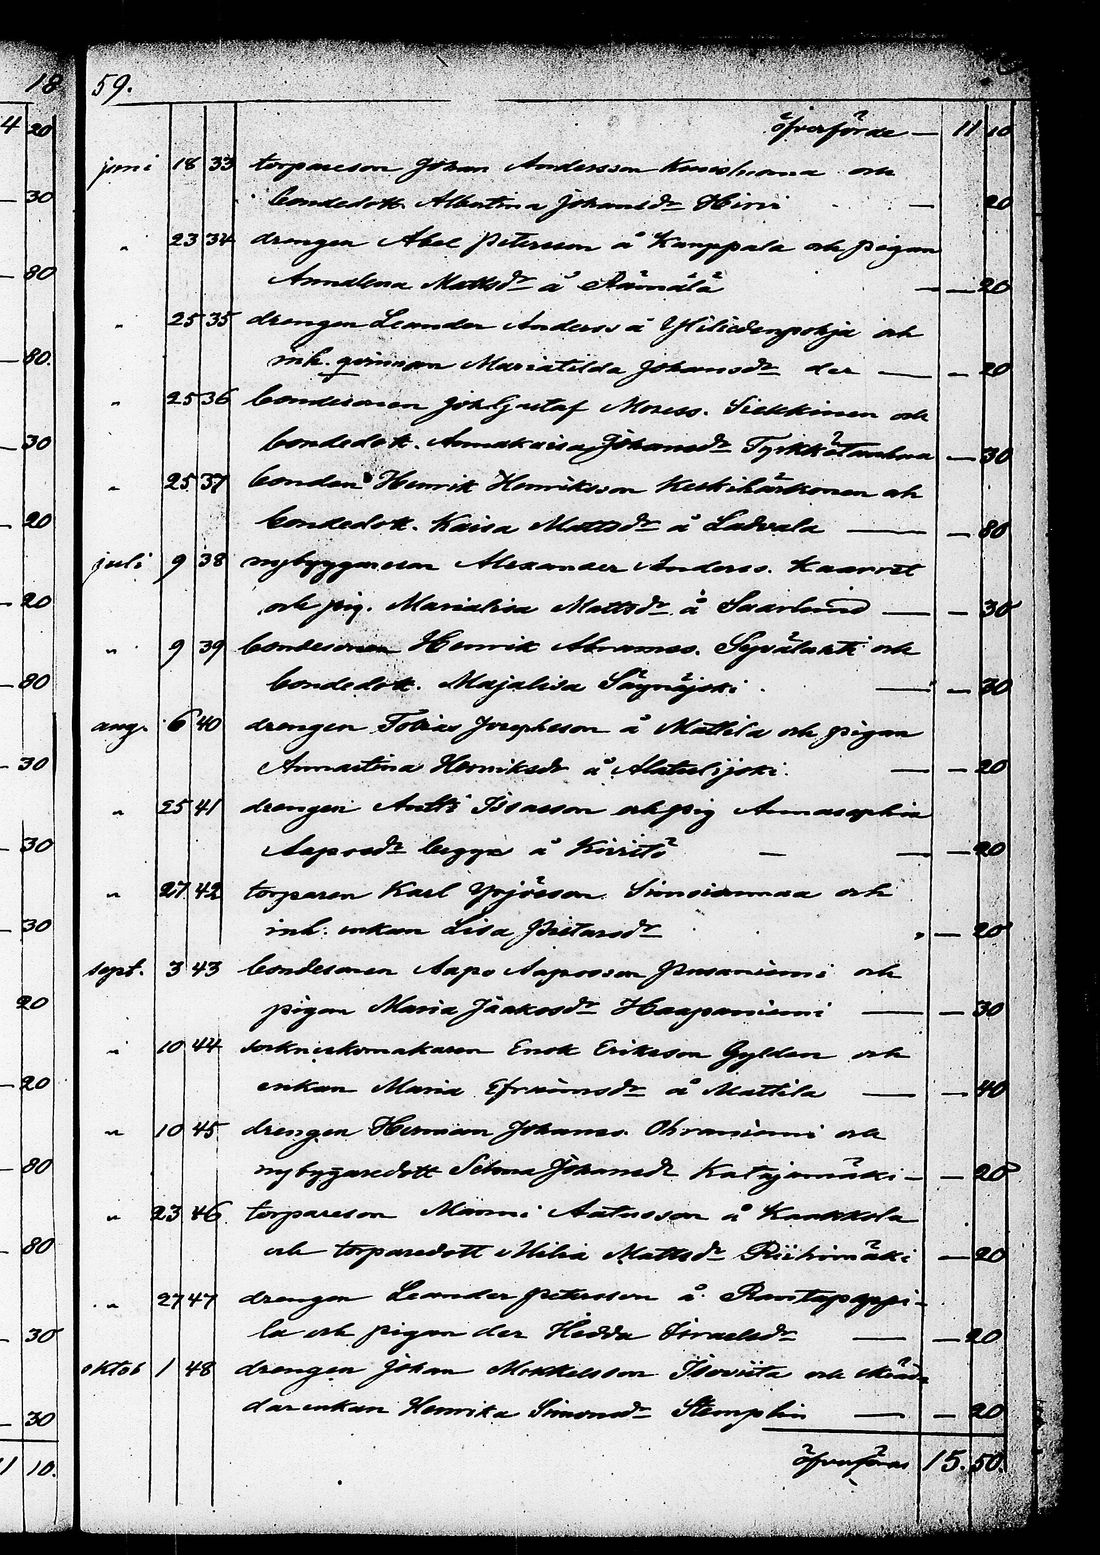 18 59.
öfverförde — 11 10
juni 18 33 torpareson Johan Andersson Kuusihuma och
bondedott. Albertina Johansdr Hirvi — 20
" 23 34 drengen Abel Petersson å Kauppala och pigan
Annalena Mattsdr å Rämälä — — 20
" 25 35 drengen Leander Anderss å Yliliedenpohja och
inh. qvinnan Mariatilda Johansdr der — — 20
" 25 36 bondesonen Joh. Gustaf Moses. Siekkinen och
bondedott. Annakaisa Johansdr Tyrkkö — 30
" 25 37 bonden Henrik Henriksson Keskihärkonen och
bondedott. Kaisa Mattsdr å Ladvala — — 80
juli 9 38 nybyggareson Alexander Anderss. Kaarret
och pig. Marialisa Mattsdr å — — 30
" 9 39 bondesonen Henrik Abramss. Syvälahti och
bondedott. Majalisa Säynäjoki — — 30
aug. 6 40 drengen Tobias Josephsson å Mattila och pigan
Annastina Henriksdr å — — 20
" 25 41 drengen Antti Isacsson och pig Annasophia
Aaposdr begge å — — 20
" 27 42 torparen Karl Yrjösson och
inh. enkan Lisa Pietarsdr — 20
sept. 3 43 bondesonen Aapo Aaposson Pusaniemi och
pigan Maria Jaakosdr Haapaniemi — — 30
" 10 44 Enok Eriksson Gylden och
enkan Maria Efraimsdr å Mattila — — 40
" 10 45 drengen Herman Johanss. Ohraniemi och
nybyggaredott Selma Johansdr Katajamäki — — 20
" 23 46 torpareson Manni Aatusson å Kaakkola
och torparedott Milia Mattsdr Riihimäki — 20
" 27 47 drengen Leander Petersson å Rantapappi-
la och pigan der Hedda Israelsdr — — 20
oktob 1 48 drengen Johan Mikkelsson och
enkan Henrika Simonsdr Stemplin — — 20
öfverföres 15. 50.